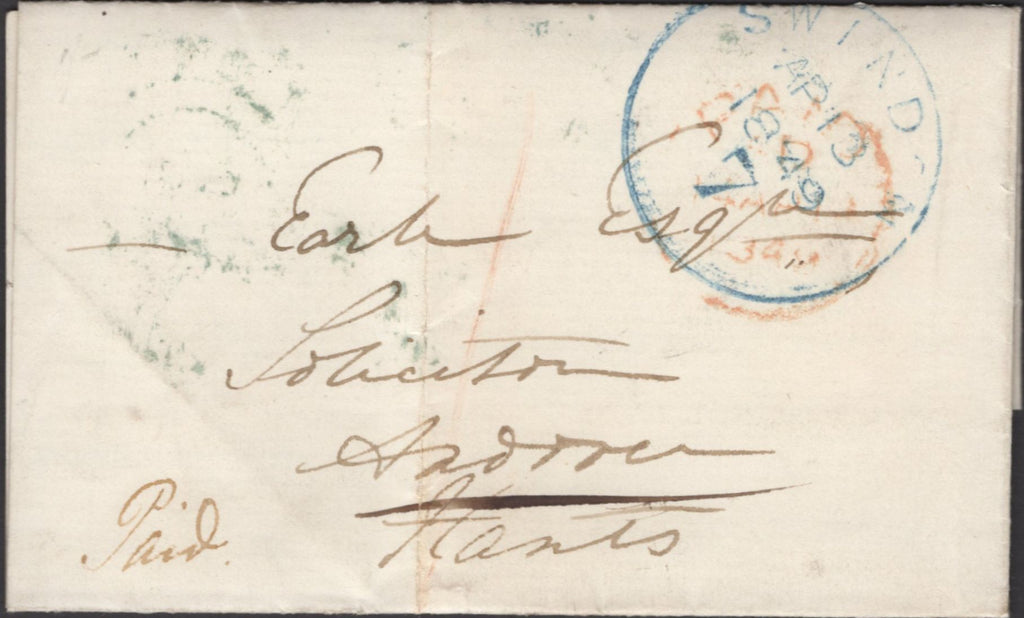 SWINDON
AP 13
1849
V
PAID
Earle Esqre
Solicitor
Andover
Hants
Paid.